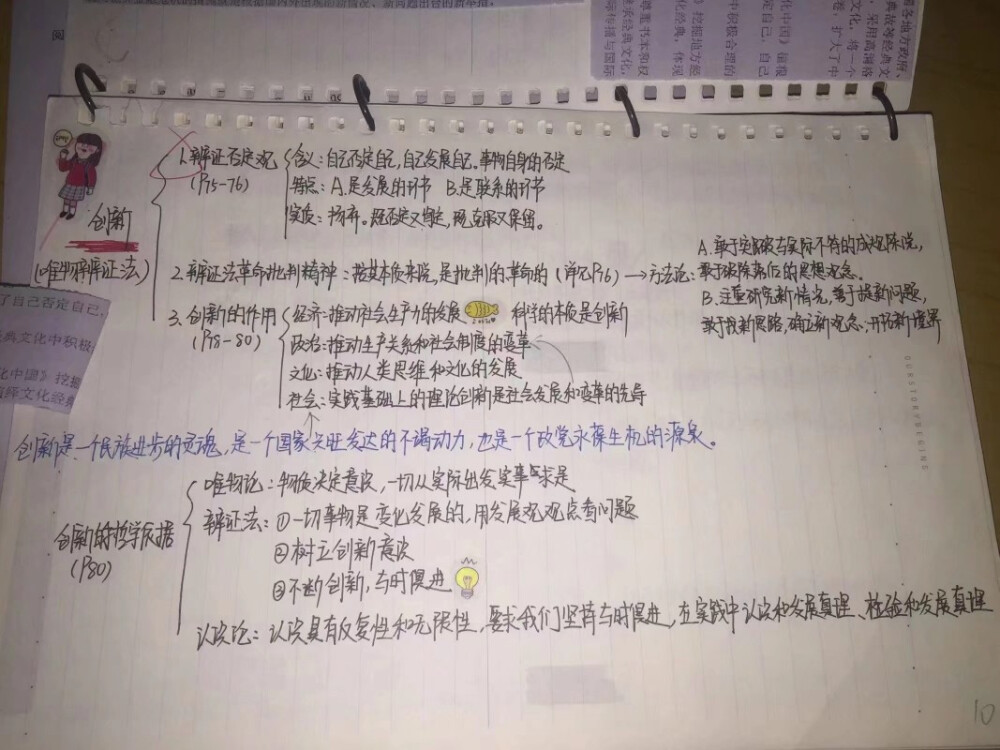 阅
1.辩证否定观
(P75-76)
含义：自己否定自己，自己发展自己。事物自身的否定
特点：A.是发展的环节 B.是联系的环节
实质：扬弃。既否定又肯定，既克服又保留。
创新
(唯物辩证法)
2.辩证法革命批判精神：按其本质来说，是批判的革命的(详见P76)→方法论：
A.敢于突破与实际不符的成规陈说，
敢于破除落后的思想观念。
B.注重研究新情况，善于提新问题，
敢于找新思路，确立新观念，开拓新境界
3.创新的作用
(P78-80)
经济：推动社会生产力的发展 科学的本质是创新
政治：推动生产关系和社会制度的变革
文化：推动人类思维和文化的发展
社会：实践基础上的理论创新是社会发展和变革的先导
创新是一个民族进步的灵魂，是一个国家兴旺发达的不竭动力，也是一个政党永葆生机的源泉。
创新的哲学依据
(P80)
唯物论：物质决定意识，一切从实际出发实事求是
辩证法：①一切事物是变化发展的，用发展观观点看问题
②树立创新意识
③不断创新，与时俱进
认识论：认识具有反复性和无限性，要求我们坚持与时俱进，在实践中认识和发展真理、检验和发展真理
了自己否定自己，
典文化中积极
化中国》挖掘
OURSTORYBEGINS
10